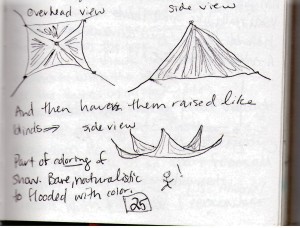 overhead view
side view
And then have them raised like
blinds → side view
Part of coloring of
show. Bare, naturalistic
to flooded with color.
!
25